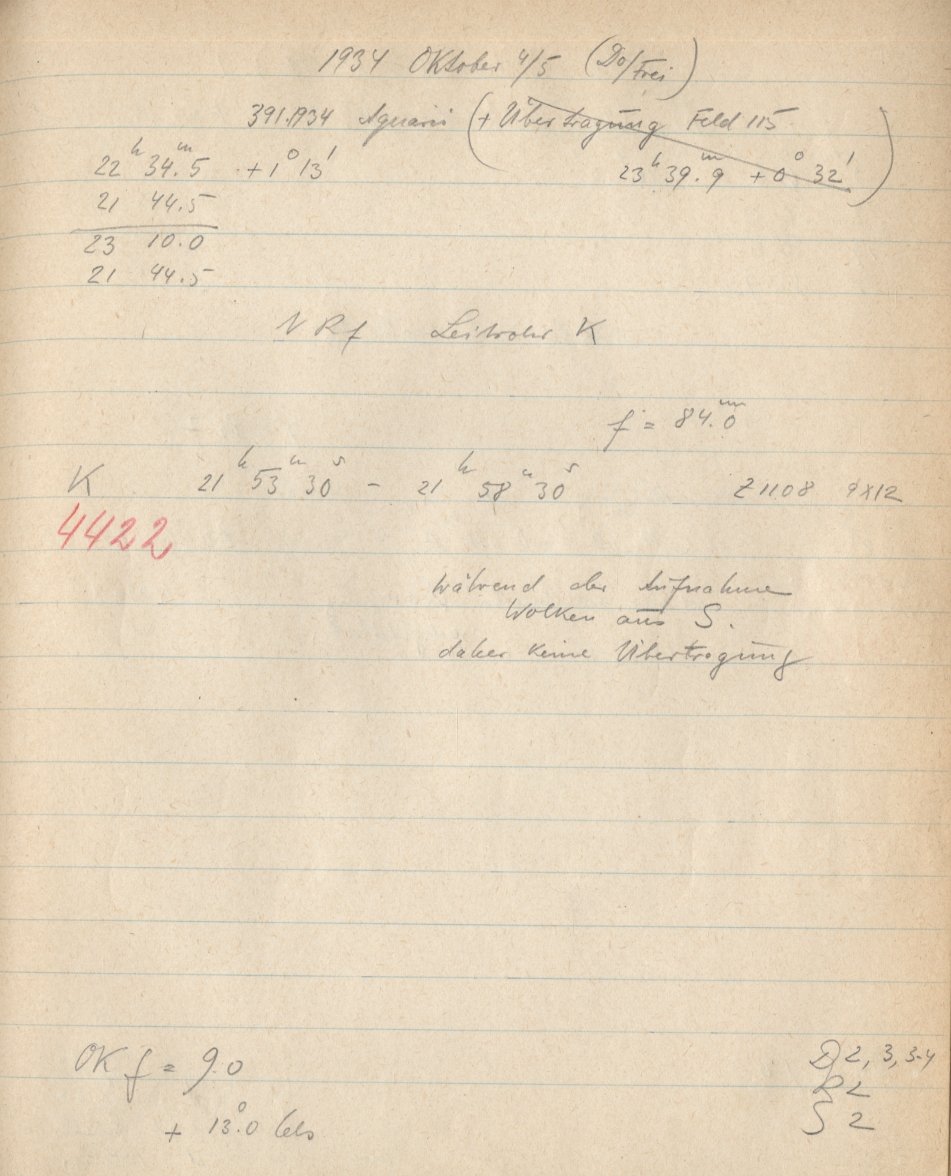 1934 Oktober 4/5 (Do/Frei)
391.1934 Aquarii (+ Übertragung Feld 115
22ʰ 34.ᵐ5 +1° 13' 23ʰ 39.ᵐ9 +0° 32')
21 44.5
23 10.0
21 44.5
N R f Leitrohr K
f = 84.ᵐᵐ0
K 21ʰ 53ᵐ 30ˢ - 21ʰ 58ᵐ 30ˢ Z1108 9x12
4422
während der Aufnahme
Wolken aus S.
daher keine Übertragung
OK f = 9.0 D 2, 3, 3-4
R 2
+ 13.°0 Cels S 2